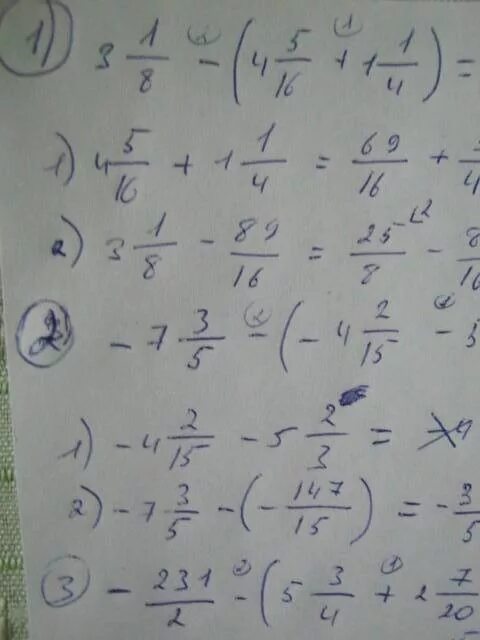 1) 3 1/8 - (4 5/16 + 1 1/4) =
1) 4 5/16 + 1 1/4 = 69/16 +
2) 3 1/8 - 89/16 = 25/8 -
2) - 7 3/5 - (- 4 2/15 -
1) - 4 2/15 - 5 2/3 =
2) - 7 3/5 - (- 147/15) = - 3/5
3 - 231/2 - (5 3/4 + 2 7/20